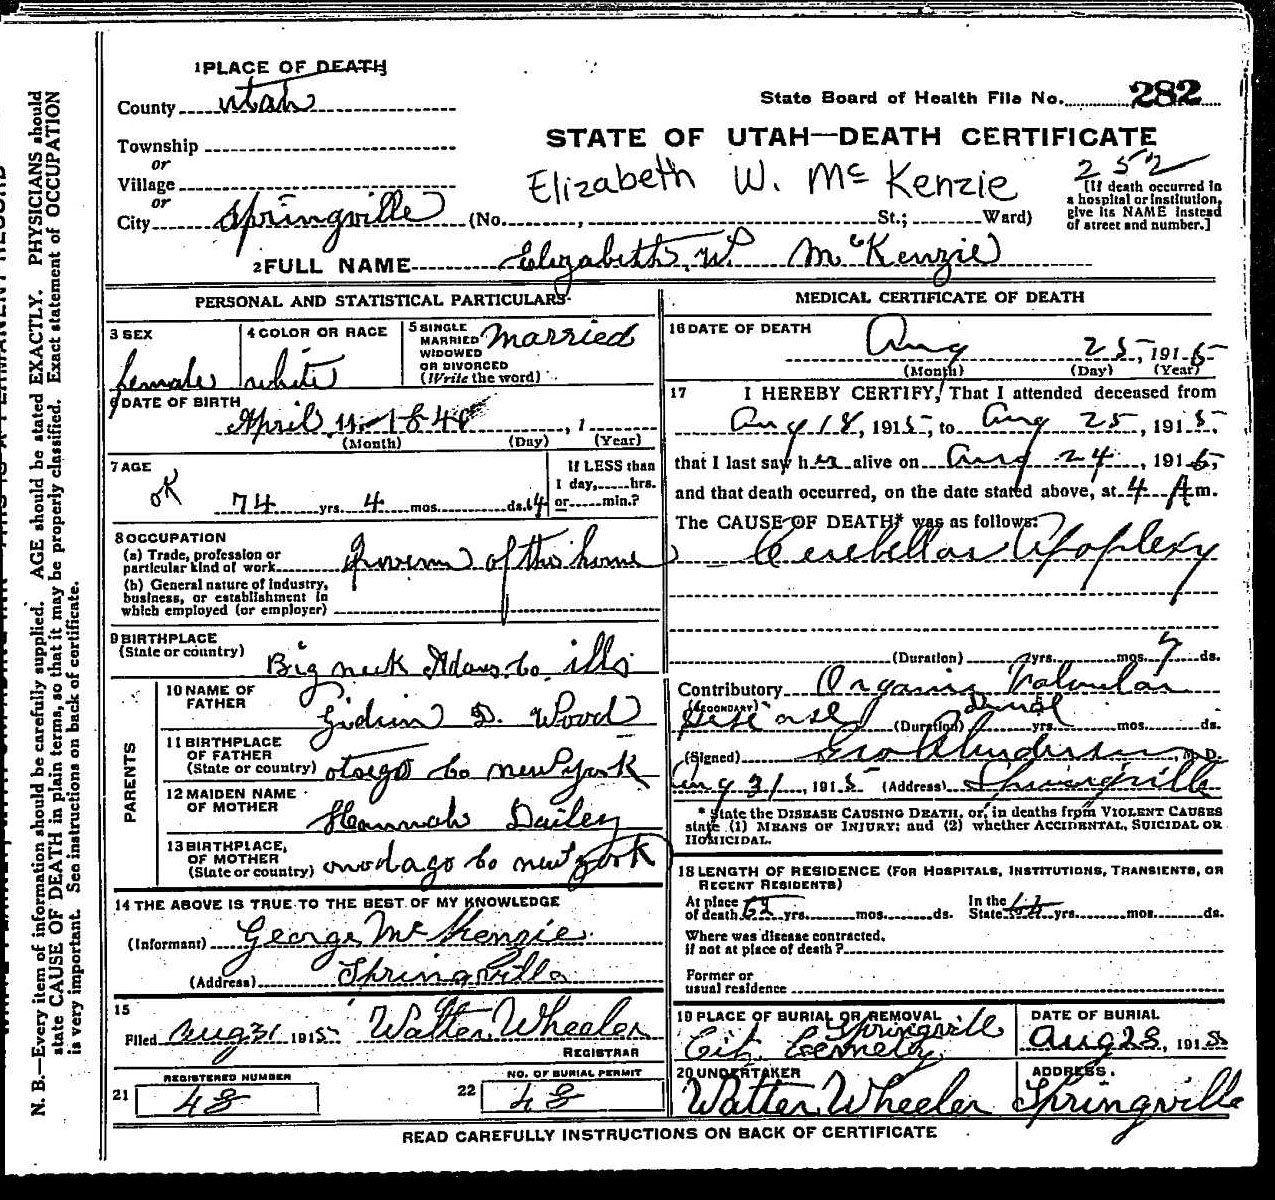 1 PLACE OF DEATH
County Utah
State Board of Health File No. 282
STATE OF UTAH—DEATH CERTIFICATE
Township
or
Village
or
City Springville (No. , St.; Ward)
Elizabeth W. McKenzie
252
[If death occurred in
a hospital or institution,
give its NAME instead
of street and number.]
2 FULL NAME Elizabeth W. McKenzie
PERSONAL AND STATISTICAL PARTICULARS
3 SEX
female
4 COLOR OR RACE
white
5 SINGLE
MARRIED
WIDOWED
OR DIVORCED
(Write the word)
Married
6 DATE OF BIRTH
April 11
(Month) (Day) , 1 (Year)
7 AGE
OK
74 yrs. 4 mos. ds. 14
If LESS than
1 day, hrs.
or min.?
8 OCCUPATION
(a) Trade, profession or
particular kind of work of the home
(b) General nature of industry,
business, or establishment in
which employed (or employer)
9 BIRTHPLACE
(State or country)
Big neck Adams Co. ills
PARENTS
10 NAME OF
FATHER
Gideon D. Wood
11 BIRTHPLACE
OF FATHER
(State or country) otsego Co new York
12 MAIDEN NAME
OF MOTHER
Hannah Dailey
13 BIRTHPLACE,
OF MOTHER
(State or country) onodago Co new York
14 THE ABOVE IS TRUE TO THE BEST OF MY KNOWLEDGE
(Informant) George McKenzie
(Address) Springville
15
Filed Aug 31 1915 Walter Wheeler
REGISTRAR
21
REGISTERED NUMBER
48
22
NO. OF BURIAL PERMIT
48
MEDICAL CERTIFICATE OF DEATH
16 DATE OF DEATH
Aug 25, 1915
(Month) (Day) (Year)
17 I HEREBY CERTIFY, That I attended deceased from
Aug 18, 1915, to Aug 25, 1915,
that I last saw her alive on Aug 24, 1915,
and that death occurred, on the date stated above, at 4 A m.
The CAUSE OF DEATH* was as follows:
Cerebellar Apoplexy
(Duration) yrs. mos. 7 ds.
Contributory Organic Valvular
(SECONDARY)
Disease (Duration) several yrs. mos. ds.
(Signed) Geo Anderson, M. D.
Aug 31, 1915 (Address) Springville
* State the DISEASE CAUSING DEATH, or, in deaths from VIOLENT CAUSES
state (1) MEANS OF INJURY; and (2) whether ACCIDENTAL, SUICIDAL OR
HOMICIDAL.
18 LENGTH OF RESIDENCE (FOR HOSPITALS, INSTITUTIONS, TRANSIENTS, OR
RECENT RESIDENTS)
At place
of death yrs. mos. ds.
In the
State yrs. mos. ds.
Where was disease contracted,
if not at place of death?
Former or
usual residence
19 PLACE OF BURIAL OR REMOVAL
Springville
City Cemetery
DATE OF BURIAL
Aug 28, 1915
20 UNDERTAKER
Walter Wheeler
ADDRESS.
Springville
READ CAREFULLY INSTRUCTIONS ON BACK OF CERTIFICATE
N. B.—Every item of information should be carefully supplied. AGE should be stated EXACTLY. PHYSICIANS should
state CAUSE OF DEATH in plain terms, so that it may be properly classified. Exact statement of OCCUPATION
is very important. See instructions on back of certificate.